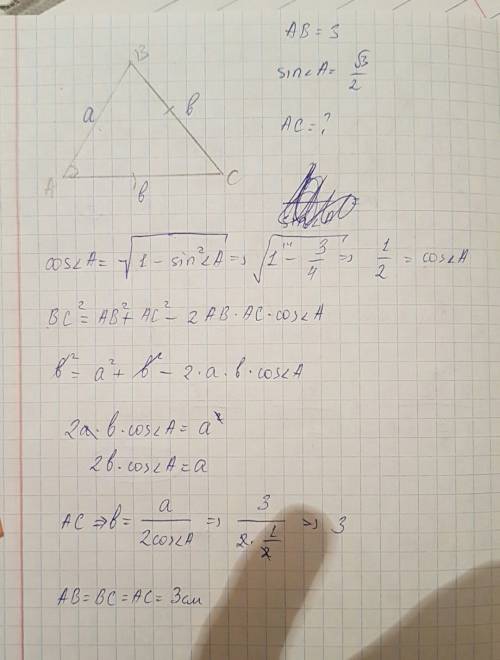 B
a
в
A
в
C
AB = 3
sin∠A = √3/2
AC = ?
cos∠A = √(1 - sin²∠A) => √(1 - 3/4) => 1/2 = cos∠A
BC² = AB² + AC² - 2AB · AC · cos∠A
в² = a² + в² - 2 · a · в · cos∠A
2a · в · cos∠A = a²
2в · cos∠A = a
AC => в = a/(2cos∠A) => 3/(2 · 1/2) => 3
AB = BC = AC = 3см